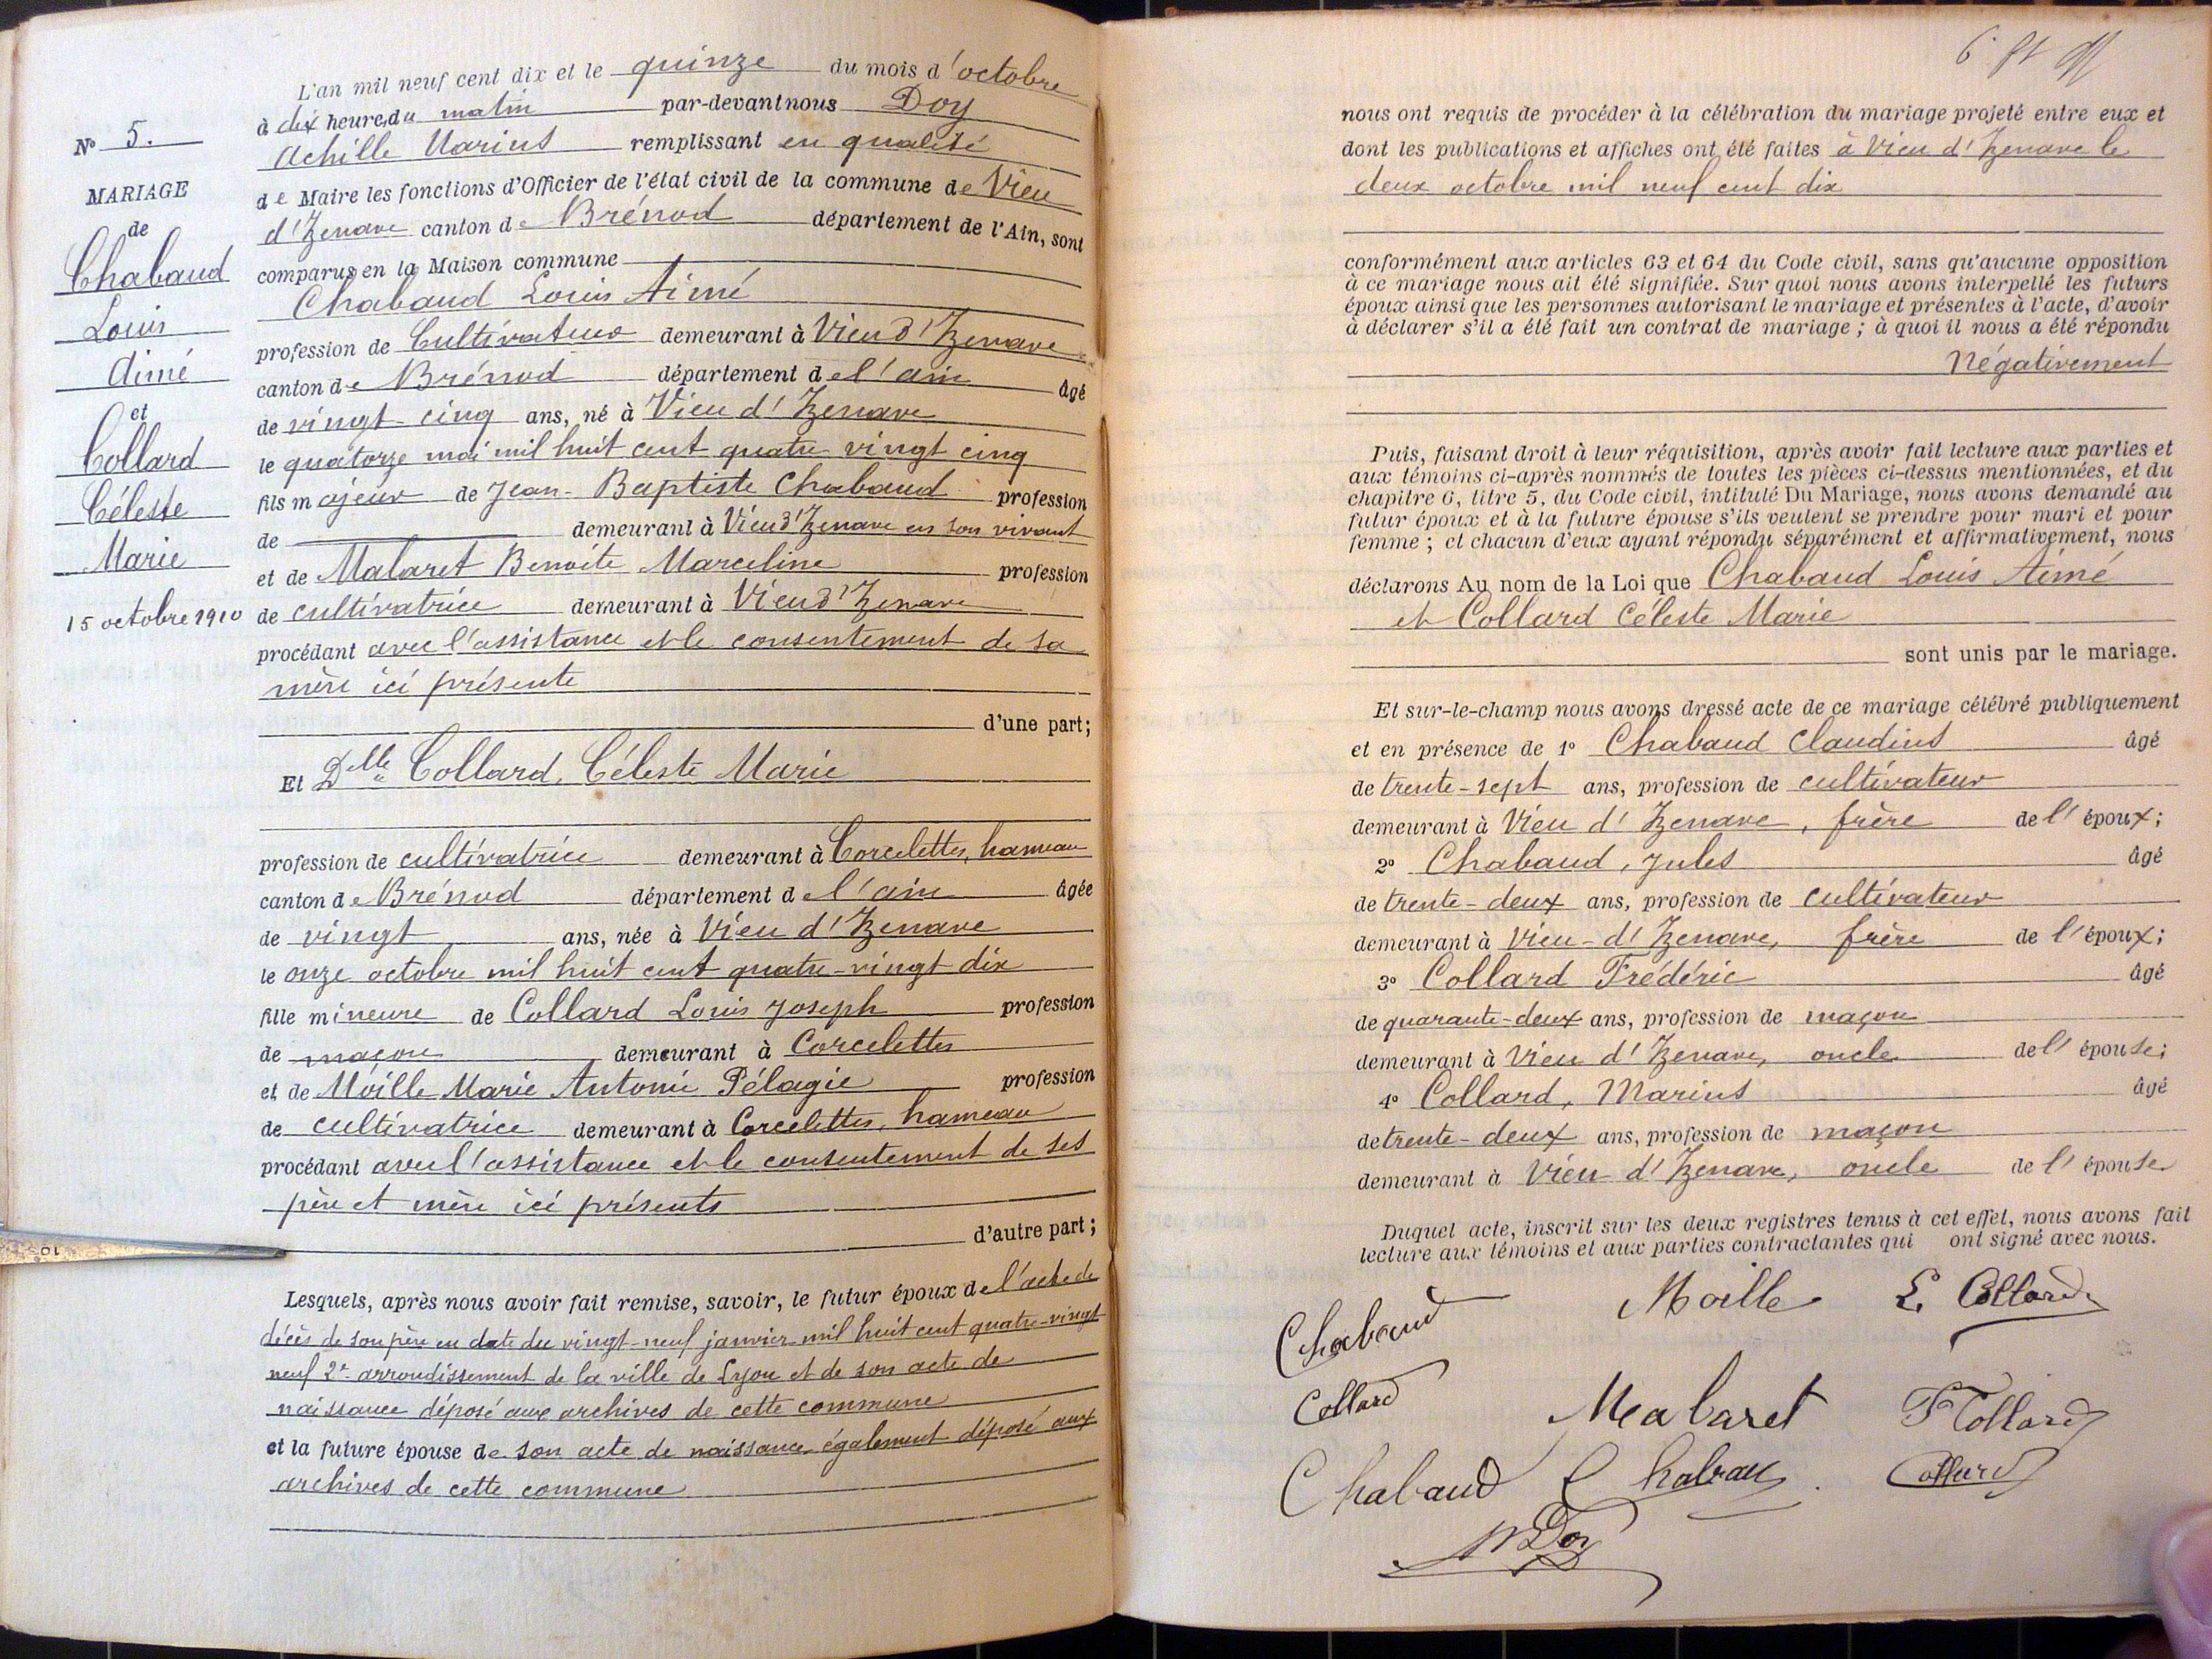 N° 5.
MARIAGE
de
Chabaud
Louis
Aimé
et
Collard
Céleste
Marie
15 octobre 1910
L'an mil neuf cent dix et le quinze du mois d'octobre
à dix heures du matin par-devant nous Doy
Achille Marius remplissant en qualité
de Maire les fonctions d'Officier de l'état civil de la commune de Vieu
d'Izenave canton de Brénod département de l'Ain, sont
comparus en la Maison commune
Chabaud Louis Aimé
profession de Cultivateur demeurant à Vieu d'Izenave
canton de Brénod département de l'ain âgé
de vingt-cinq ans, né à Vieu d'Izenave
le quatorze mai mil huit cent quatre vingt cinq
fils majeur de Jean-Baptiste Chabaud profession
de demeurant à Vieu d'Izenave en son vivant
et de Mabaret Benoite Marceline profession
de cultivatrice demeurant à Vieu d'Izenave
procédant avec l'assistance et le consentement de sa
mère ici présente
d'une part;
Et Delle Collard, Céleste Marie
profession de cultivatrice demeurant à Corcelettes, hameau
canton de Brénod département de l'ain âgée
de vingt ans, née à Vieu d'Izenave
le onze octobre mil huit cent quatre-vingt dix
fille mineure de Collard Louis Joseph profession
de maçon demeurant à Corcelettes
et de Moille Marie Antonie Pélagie profession
de cultivatrice demeurant à Corcelettes, hameau
procédant avec l'assistance et le consentement de ses
père et mère ici présents
d'autre part;
Lesquels, après nous avoir fait remise, savoir, le futur époux de l'acte de
décès de son père en date du vingt-neuf janvier mil huit cent quatre-vingt
neuf 2e arrondissement de la ville de Lyon et de son acte de
naissance déposé aux archives de cette commune
et la future épouse de son acte de naissance également déposé aux
archives de cette commune
nous ont requis de procéder à la célébration du mariage projeté entre eux et
dont les publications et affiches ont été faites à Vieu d'Izenave le
deux octobre mil neuf cent dix
conformément aux articles 63 et 64 du Code civil, sans qu'aucune opposition
à ce mariage nous ait été signifiée. Sur quoi nous avons interpellé les futurs
époux ainsi que les personnes autorisant le mariage et présentes à l'acte, d'avoir
à déclarer s'il a été fait un contrat de mariage; à quoi il nous a été répondu
Négativement
Puis, faisant droit à leur réquisition, après avoir fait lecture aux parties et
aux témoins ci-après nommés de toutes les pièces ci-dessus mentionnées, et du
chapitre 6, titre 5, du Code civil, intitulé Du Mariage, nous avons demandé au
futur époux et à la future épouse s'ils veulent se prendre pour mari et pour
femme; et chacun d'eux ayant répondu séparément et affirmativement, nous
déclarons Au nom de la Loi que Chabaud Louis Aimé
et Collard Céleste Marie
sont unis par le mariage.
Et sur-le-champ nous avons dressé acte de ce mariage célébré publiquement
et en présence de 1° Chabaud Claudius âgé
de trente-sept ans, profession de cultivateur
demeurant à Vieu d'Izenave, frère de l'époux;
2° Chabaud, Jules âgé
de trente-deux ans, profession de cultivateur
demeurant à Vieu-d'Izenave, frère de l'époux;
3° Collard Frédéric âgé
de quarante-deux ans, profession de maçon
demeurant à Vieu d'Izenave, oncle de l'épouse;
4° Collard, Marius âgé
de trente-deux ans, profession de maçon
demeurant à Vieu d'Izenave, oncle de l'épouse
Duquel acte, inscrit sur les deux registres tenus à cet effet, nous avons fait
lecture aux témoins et aux parties contractantes qui ont signé avec nous.
Chabaud Moille L. Collard
Collard Mabaret F Collard
Chabaud Chabaud Collard
Doy